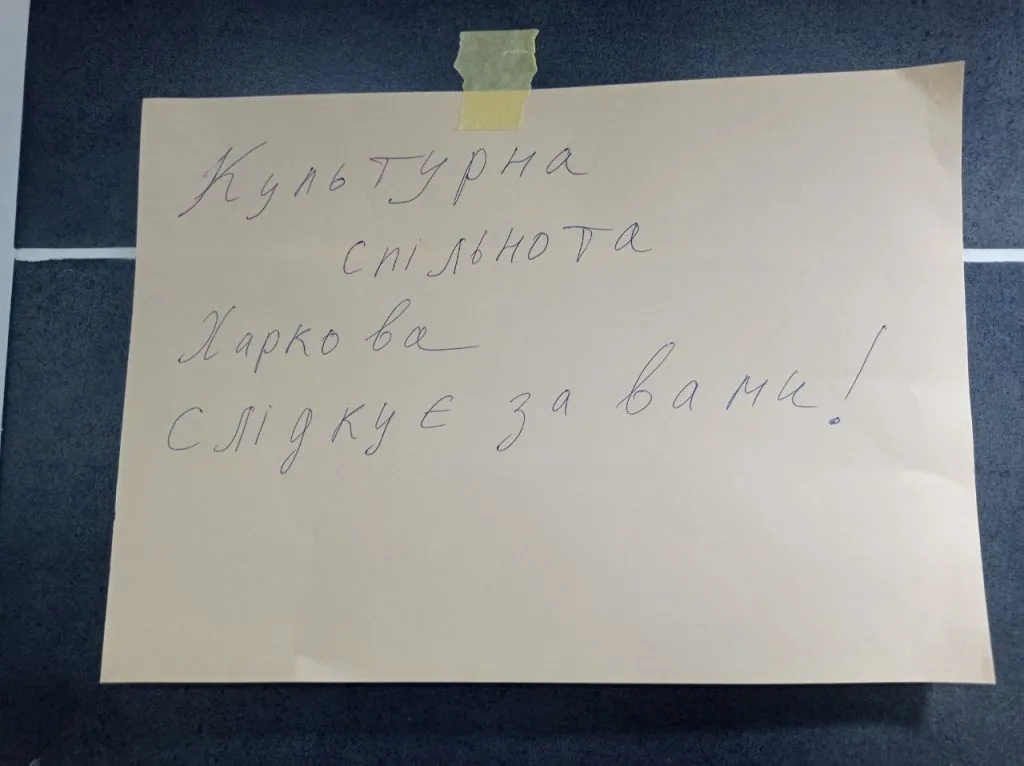 Культурна
спільнота
Харкова
слідкує за вами!